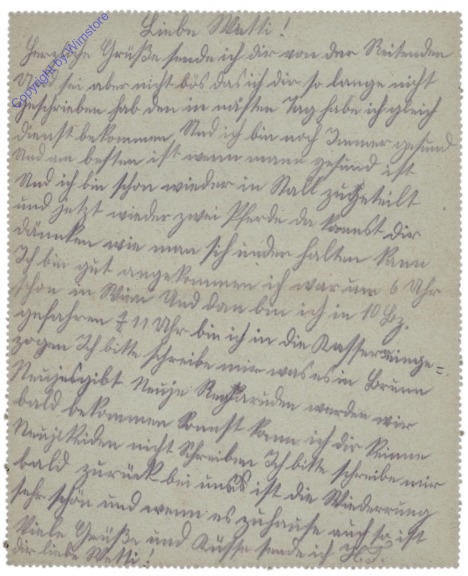 Liebe Wetti!
Herzliche Grüße sende ich dir von der Reitenden
sei aber nicht bös das ich dir so lange nicht
geschrieben hab den in nästen Tag habe ich gleich
dienst bekommen, Und ich bin noch Immer gesund
Und am besten ist wenn mann gesund ist
Und ich bin schon wieder in Stall zugeteilt
und jetzt wieder zwei Pferde da kannst dir
dänken wie man sich under halten kann
Ich bin gut angekommen ich war um 6 Uhr
schon in Wien Und dan bin ich in 10
gefahren 11 Uhr bin ich in die Kasserneinge=
zogen Ich bitte schreibe mir was es in Brunn
Neujesgibt Neuje werden wir
bald bekommen Sonnst kann ich dir Keine
nicht Schreiben Ich bitte schreibe mir
bald zurück bei uns ist die Wiederrung
sehr schön und wenn es zuhause auch so ist
Viele Grüße und Küsse sende ich
dir liebe Wetti!
Copyright by Wimstore